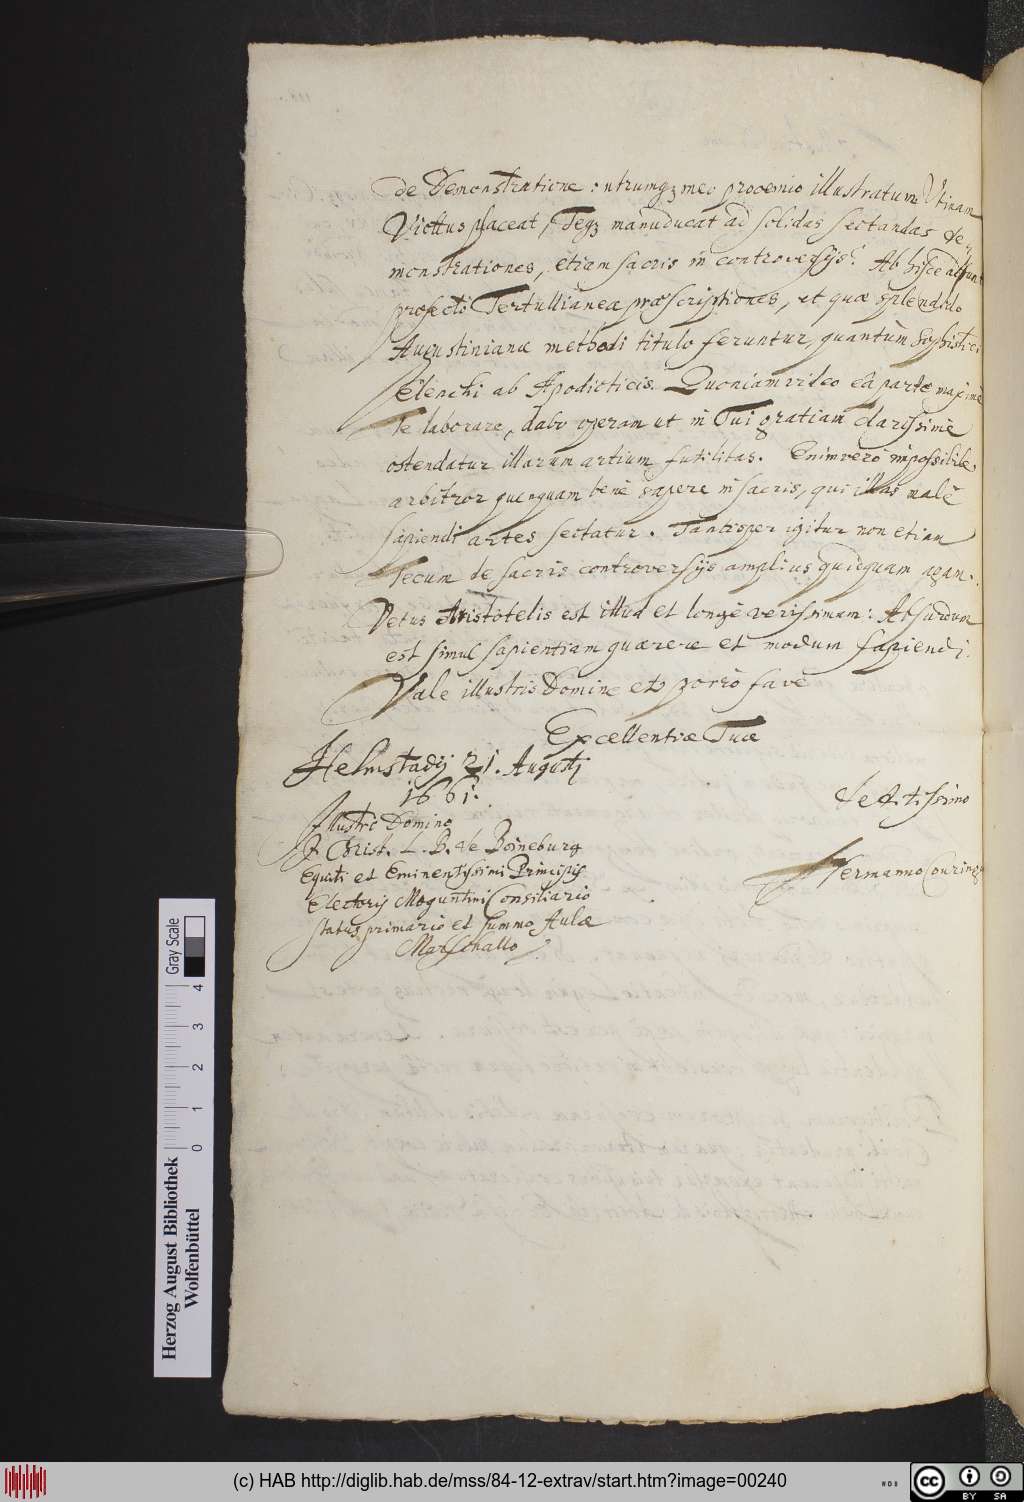 de Demonstratione: utrumqꝫ meo prooemio illustratum Utinam
Victtus placeat, Teqꝫ manuducat ad solidas sectandas de-
monstrationes, etiam sacris in controversijs! Ab hisce absunt
profectò Tertullianea præscriptiones, et quæ splendido
Augustinianæ methodi titulo feruntur, quantùm Sophistici
Elenchi ab Apodicticis. Quoniam video eâ parte maximè
Te laborare, dabo operam ut in Tui gratiam Clarissimè
ostendatur illarum artium futilitas. Enimverò impossibile
arbitror quenquam benè sapere in sacris, qui illas malè
sapiendi artes sectatur. Tantisper igitur non etiam
Tecum de sacris controversijs amplius quicquam agam.
Vetus Aristotelis est illud et longè verissimum: Absurdum
est simul sapientiam quærere et modum sapiendi.
Vale illustris Domine et porrò fave
Excellentiæ Tuæ
Helmstadij 21. Augusti
1661.
deditissimo
Illustri Domino
J. Christ. L. B. de Boineburg
Hermanno Conringio
Equiti et Eminentissimi Principis
Electoris Moguntini Consiliario
status primario et summo Aulæ
Marschallo
Gray Scale
4
3
2
1
0
Herzog August Bibliothek
Wolfenbüttel
(c) HAB http://diglib.hab.de/mss/84-12-extrav/start.htm?image=00240
cc BY SA